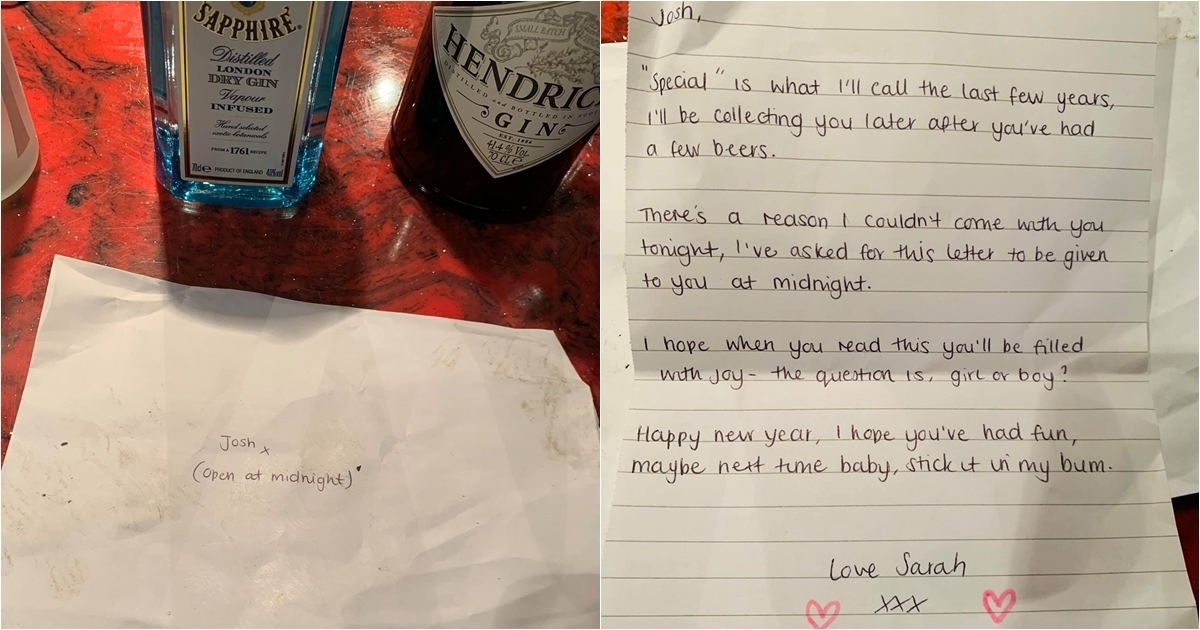 SAPPHIRE®
Distilled
LONDON
DRY GIN
Vapour
INFUSED
Hand selected
exotic botanicals
FROM A 1761 RECIPE
70cl e PRODUCT OF ENGLAND 40%vol
SMALL BATCH
HENDRIC
DISTILLED and BOTTLED IN SCO
GIN
EST. 1886
41.4% Vol
70 CL e
Josh x
(open at midnight)
Josh,
"Special" is what I'll call the last few years,
I'll be collecting you later after you've had
a few beers.
There's a reason I couldn't come with you
tonight, I've asked for this letter to be given
to you at midnight.
I hope when you read this you'll be filled
with joy - the question is, girl or boy?
Happy new year, I hope you've had fun,
maybe next time baby, stick it in my bum.
Love Sarah
xxx